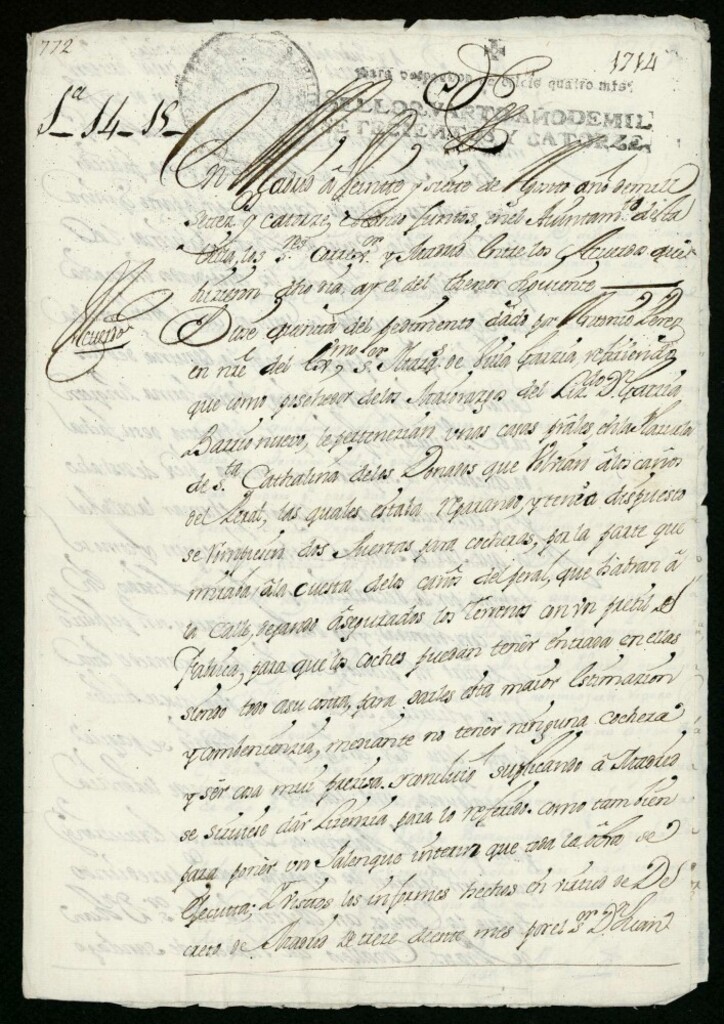 772
1714
Para despachos de oficio quatro mrs.
SELLO QVARTO AÑO DE MIL
SETECIENTOS Y CATORZE.
1ª 14-15-
En Madrid à Veinte y siete de Março año de mill
settez.ºs y catorze, estando Juntos, en el Ayuntam.to de esta
Villa, los S.res Correx.or y Madrid Entre los Acuerdos que
hizieron ay el del thenor siguiente
Acuerdo
Diose quenta del pedimento dado por Perez
en nre del s.r Marq.s de Villa Garzia, refiriendo
que como posehedor de los Maiorazgos del Liz.do D.n Garzia
Barrio nuevo, le pertenezian unas casas prãles en la Plazuela
de S.ta Cathalina de los Donados que Volvian à los caños
del Peral, las quales estaba reparando, y tenia dispuesto
se hiziesen dos Puertas para cocheras, por la parte que
miraba, à la cuesta de los caños del peral, que habran à
la Calle, dejando asegurados los Terrenos con un pretil de
fabrica, para que los coches puedan tener entrada en ellas
siendo todo a su costa, para darles esta maior Estimazion
y combenienzia, mediante no tener ninguna cochera
y ser cosa mui preziza. concluió suplicando à Madrid
se sirviese dàr Lizenzia para lo referido. como tambien
para poner un Palenque interin que toda la obra se
ejecuta; Y vistos los informes hechos en virtud de De
creto de Madrid de treze de este mes por el S.or D.n Juan